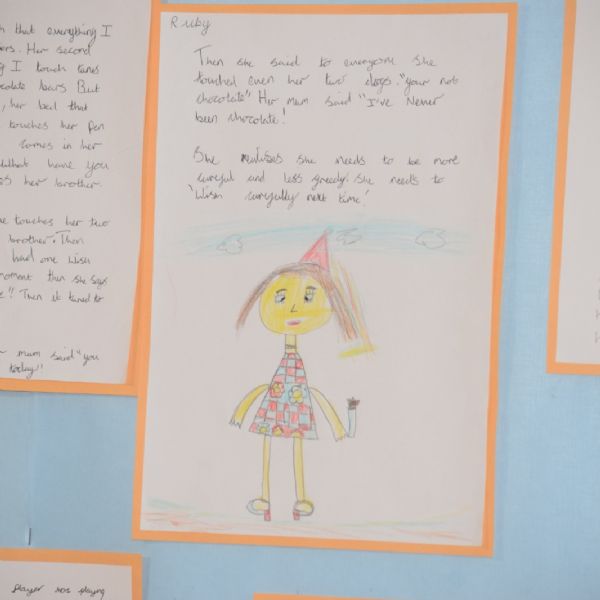 h that everything I
ers. Her second
g I touch tunes
ocolate bars But
, her bed that
touches her pen
comes in her
What have you
es her brother.
e touches her two
brother. Then
had one wish
moment then she says
e"! Then it tuned to
mum said "you
today"
Ruby
Then she said to everyone she
touched even her two dogs. "your not
chocolate" Her mum said "I've Never
been chocolate!
She she needs to be more
careful and less greedy. She needs to
'Wish carefully next time!
player was playing